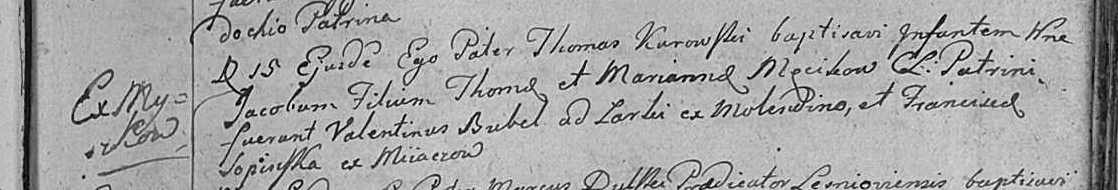 dochio Patrina
Ex My=
szkow
D 15 Ejusde Ego Pater Thomas Kurowski baptisavi Infantem Nne
Jacobum Filium Thomæ et Mariannæ Męcikow C. L: Patrini
fuerunt Valentinus Bubel ad Larki ex Molendino, et Francisca
Sopinska ex Mijaczow
Pater Marcus Dulski Prædicator Lesnioviensis baptisavi